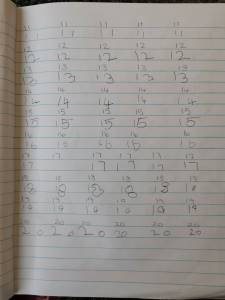 11 11 11 11 11
11 11 11 11 11
12 12 12 12 12
12 12 12 12 12
13 13 13 13 13
13 13 13 13 13
14 14 14 14 14
14 14 14 14 14
15 15 15 15 15
15 15 15 15 15
16 16 16 16 16
16 16 16 16 16
17 17 17 17 17 17
17 17 17 17 17
18 18 18 18 18 18
18 18 18 18 18 18
19 19 19 19 19 19
19 19 19 19 19 19
20 20 20 20 20 20
20 20 20 20 20 20